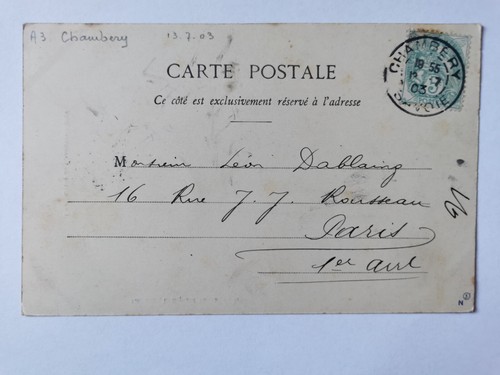 A3 Chambery 13.7.03
CARTE POSTALE
Ce côté est exclusivement réservé à l'adresse
CHAMBERY
18 55
7
03
SAVOIE
Monsieur Léon Dablaing
16 Rue J. J. Rousseau
Paris
1er arrt
N